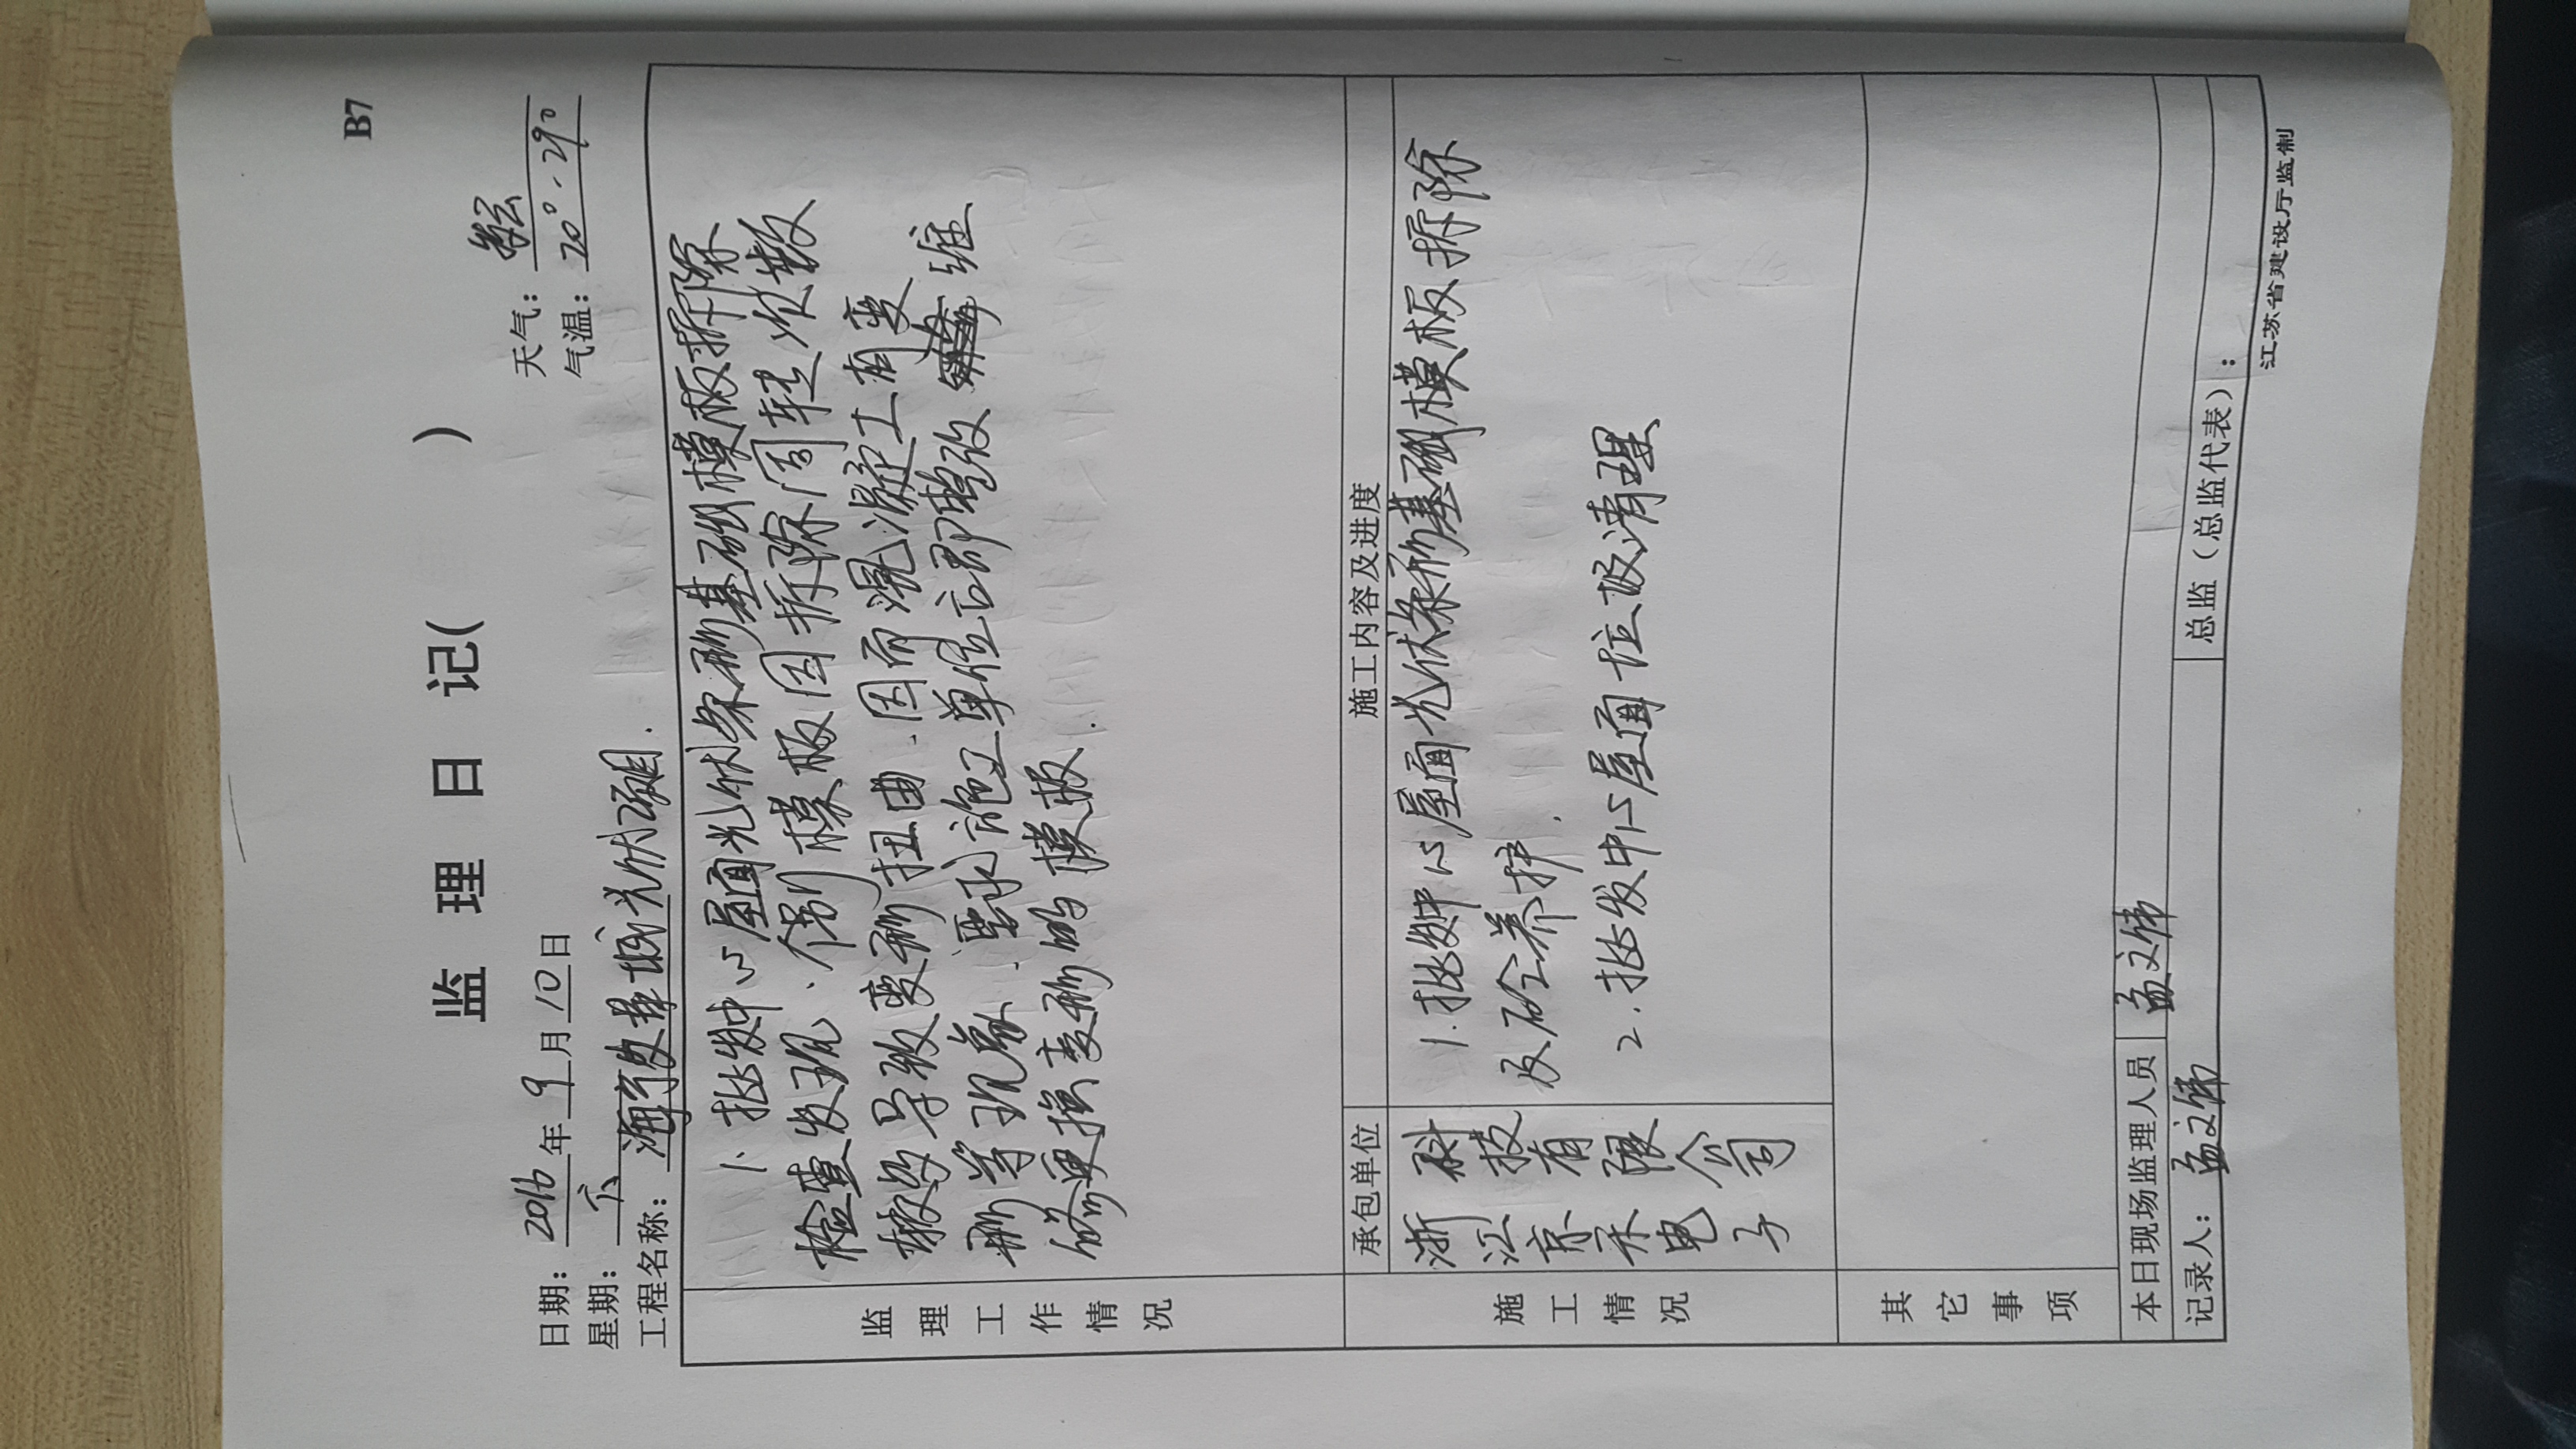 B7
监 理 日 记( )
日期: 2016 年 9 月 10 日 天气: 多云
星期: 六 气温: 20°-29°
工程名称: 海宁皮革城光伏项目.
监理工作情况
1、批发中心屋面光伏条形基础模板拆除
检查发现、个别模板因拆除周转次数
较多导致变形扭曲、因而混凝土有变
形等现象、要求施工单位立即整改 维
修更换变形的模板.
施工情况
承包单位 施工内容及进度
浙江京禾电子科技有限公司
1.批发中心屋面光伏条形基础模板拆除
及砼养护.
2.批发中心屋面垃圾清理
其它事项
本日现场监理人员 孟文伟
记录人: 孟文伟 总监(总监代表):
江苏省建设厅监制